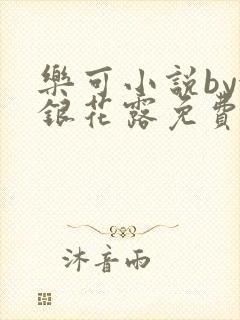 樂可小説by
銀花露免費
沐音雨